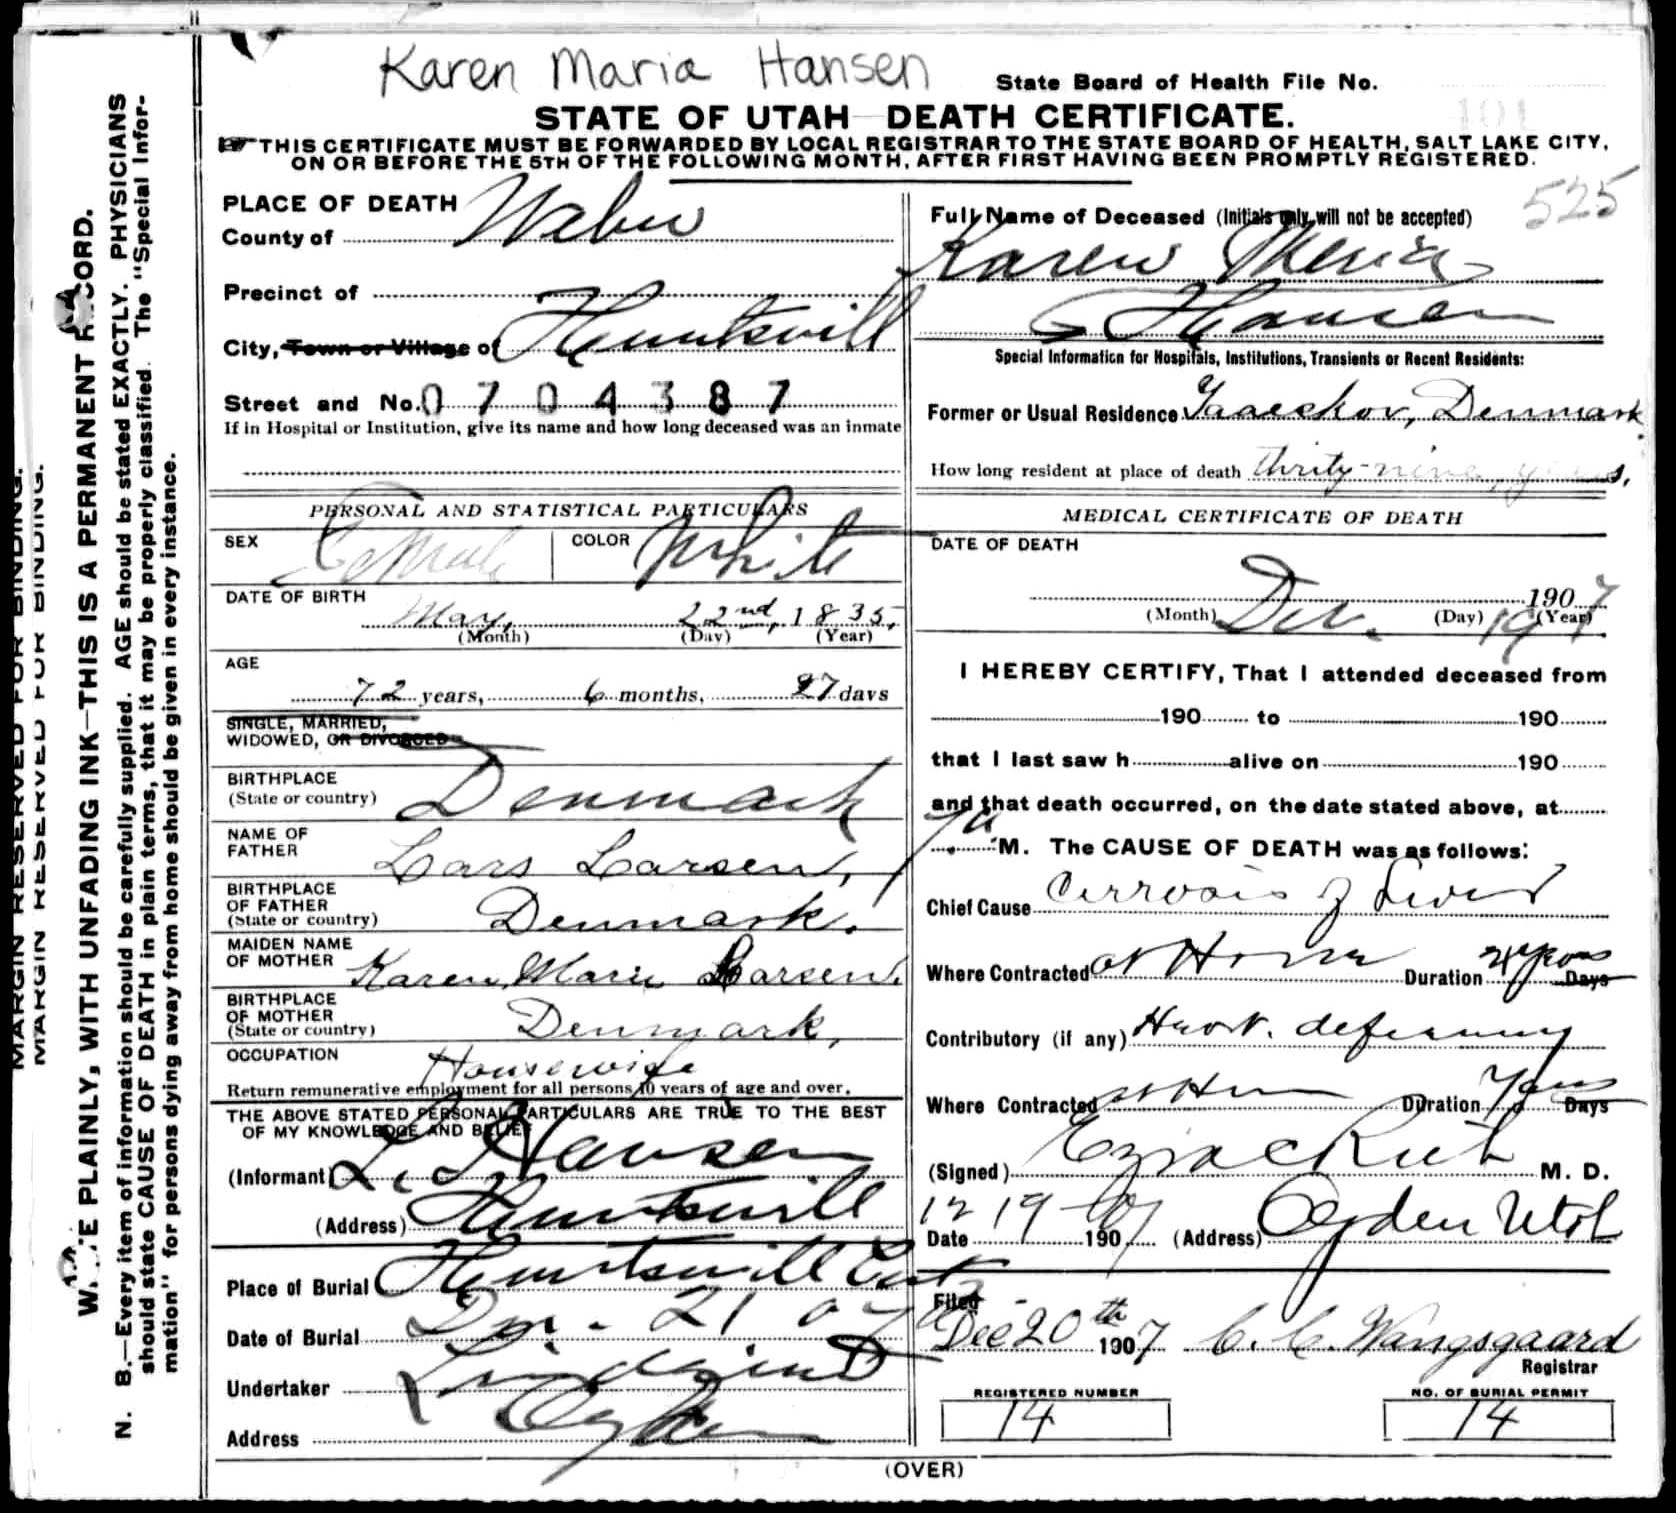 Karen Maria Hansen
State Board of Health File No.
101
STATE OF UTAH—DEATH CERTIFICATE.
THIS CERTIFICATE MUST BE FORWARDED BY LOCAL REGISTRAR TO THE STATE BOARD OF HEALTH, SALT LAKE CITY,
ON OR BEFORE THE 5TH OF THE FOLLOWING MONTH, AFTER FIRST HAVING BEEN PROMPTLY REGISTERED.
MARGIN RESERVED FOR BINDING.
MARGIN RESERVED FOR BINDING.
WRITE PLAINLY, WITH UNFADING INK—THIS IS A PERMANENT RECORD.
N. B.—Every item of information should be carefully supplied. AGE should be stated EXACTLY. PHYSICIANS
should state CAUSE OF DEATH in plain terms, that it may be properly classified. The "Special Infor-
mation" for persons dying away from home should be given in every instance.
PLACE OF DEATH
County of Weber
Precinct of
City, Town or Village of Huntsvill
Street and No. 0704387
If in Hospital or Institution, give its name and how long deceased was an inmate
PERSONAL AND STATISTICAL PARTICULARS
SEX Female COLOR White
DATE OF BIRTH
May, 22nd, 1835,
(Month) (Day) (Year)
AGE
72 years, 6 months, 27 days
SINGLE, MARRIED,
WIDOWED, OR DIVORCED
BIRTHPLACE
(State or country) Denmark
NAME OF
FATHER Lars Larsen,
BIRTHPLACE
OF FATHER
(State or country) Denmark.
MAIDEN NAME
OF MOTHER Karen Marie Larsen.
BIRTHPLACE
OF MOTHER
(State or country) Denmark,
OCCUPATION Housewife
Return remunerative employment for all persons 10 years of age and over.
THE ABOVE STATED PERSONAL PARTICULARS ARE TRUE TO THE BEST
OF MY KNOWLEDGE AND BELIEF
(Informant) L. L. Hansen
(Address) Huntsvill
Place of Burial Huntsvill
Date of Burial Dec. 21 07
Undertaker Lindquist
Address Ogden
525
Full Name of Deceased (Initials only will not be accepted)
Karen Maria
Hansen
Special Information for Hospitals, Institutions, Transients or Recent Residents:
Former or Usual Residence Denmark.
How long resident at place of death thrity-nine years,
MEDICAL CERTIFICATE OF DEATH
DATE OF DEATH
Dec. 19 1907
(Month) (Day) (Year)
I HEREBY CERTIFY, That I attended deceased from
190 to 190
that I last saw h alive on 190
and that death occurred, on the date stated above, at
7 a M. The CAUSE OF DEATH was as follows:
Chief Cause of Liver
Where Contracted at Home Duration Years Days
Contributory (if any) Heart
Where Contracted at Home Duration Years Days
(Signed) Ezra C Rich M. D.
Date 12 19 1907 (Address) Ogden Utah
Filed
Dec 20th 1907 C. C. Wangsgaard
Registrar
REGISTERED NUMBER
14
NO. OF BURIAL PERMIT
14
(OVER)